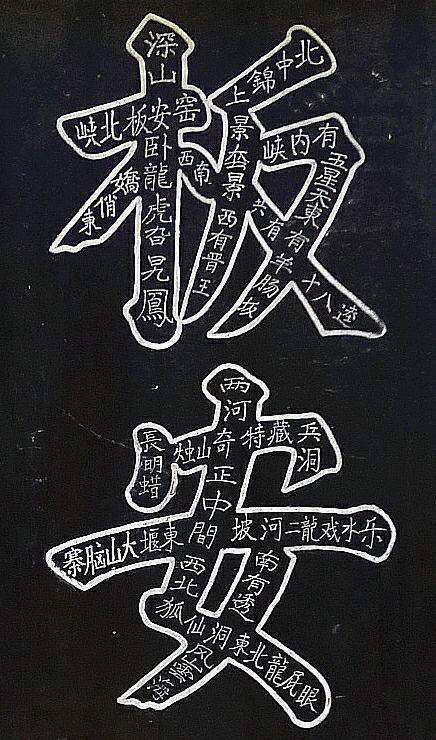 深山
窑安板北峡
卧龍虎召晃鳳
嬌俏東
西南
北中錦上
景盔景
西有晋王
峡内有五星天東有
共有羊肠坂
十八逵
两河
長明蜡烛山奇特藏兵洞
正中間
乐水戏龍二河坡間東堰大山脑寨
西北狐仙洞東北龍屁眼
南有透
风雾海